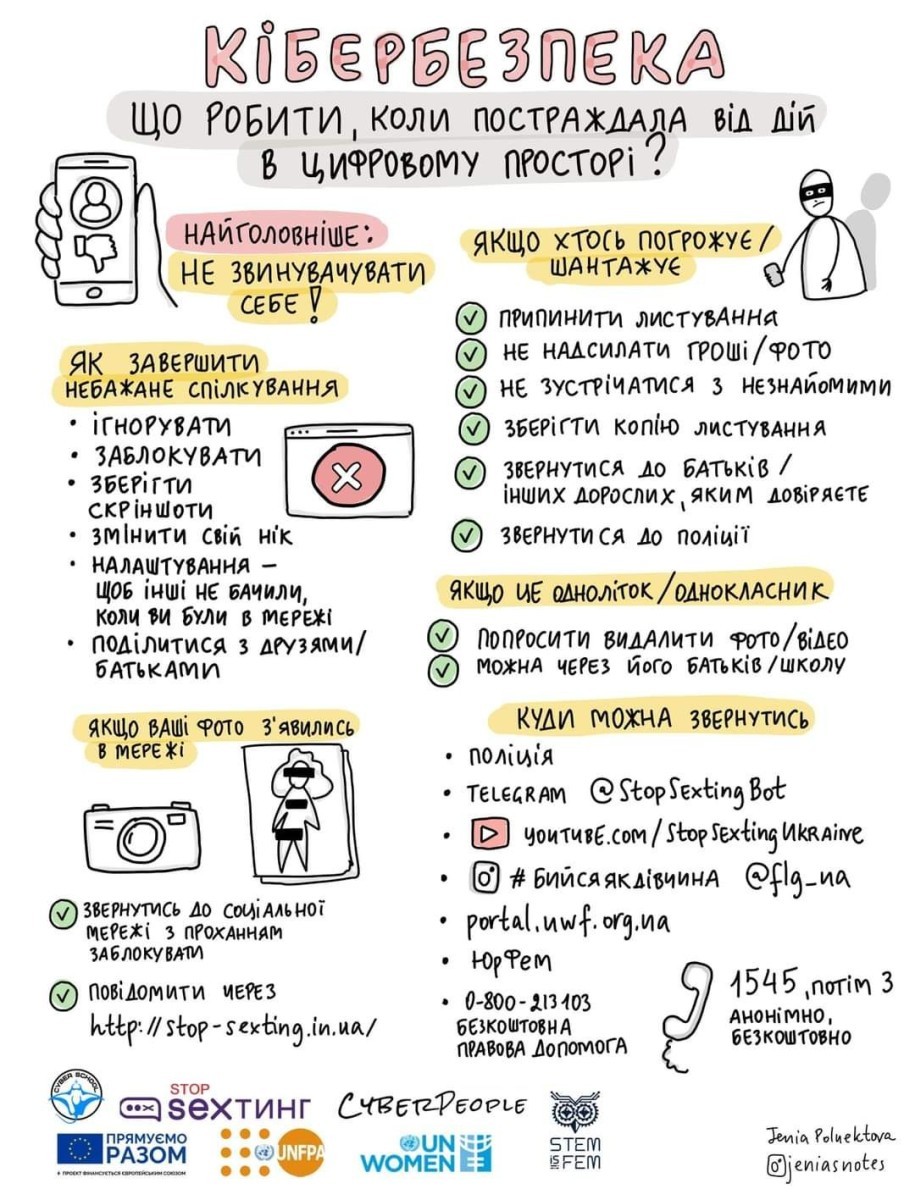 КІБЕРБЕЗПЕКА
ЩО РОБИТИ, КОЛИ ПОСТРАЖДАЛА ВІД ДІЙ
В ЦИФРОВОМУ ПРОСТОРІ?
НАЙГОЛОВНІШЕ:
НЕ ЗВИНУВАЧУВАТИ
СЕБЕ!
ЯК ЗАВЕРШИТИ
НЕБАЖАНЕ СПІЛКУВАННЯ
• ІГНОРУВАТИ
• ЗАБЛОКУВАТИ
• ЗБЕРІГТИ
СКРІНШОТИ
• ЗМІНИТИ СВІЙ НІК
• НАЛАШТУВАННЯ –
ЩОБ ІНШІ НЕ БАЧИЛИ,
КОЛИ ВИ БУЛИ В МЕРЕЖІ
• ПОДІЛИТИСЯ З ДРУЗЯМИ/
БАТЬКАМИ
ЯКЩО ВАШІ ФОТО З'ЯВИЛИСЬ
В МЕРЕЖІ
ЗВЕРНУТИСЬ ДО СОЦІАЛЬНОЇ
МЕРЕЖІ З ПРОХАННЯМ
ЗАБЛОКУВАТИ
ПОВІДОМИТИ ЧЕРЕЗ
http://stop-sexting.in.ua/
ЯКЩО ХТОСЬ ПОГРОЖУЄ/
ШАНТАЖУЄ
ПРИПИНИТИ ЛИСТУВАННЯ
НЕ НАДСИЛАТИ ГРОШІ/ФОТО
НЕ ЗУСТРІЧАТИСЯ З НЕЗНАЙОМИМИ
ЗБЕРІГТИ КОПІЮ ЛИСТУВАННЯ
ЗВЕРНУТИСЯ ДО БАТЬКІВ/
ІНШИХ ДОРОСЛИХ, ЯКИМ ДОВІРЯЄТЕ
ЗВЕРНУТИСЯ ДО ПОЛІЦІЇ
ЯКЩО ЦЕ ОДНОЛІТОК/ОДНОКЛАСНИК
ПОПРОСИТИ ВИДАЛИТИ ФОТО/ВІДЕО
МОЖНА ЧЕРЕЗ ЙОГО БАТЬКІВ/ШКОЛУ
КУДИ МОЖНА ЗВЕРНУТИСЬ
• ПОЛІЦІЯ
• TELEGRAM @StopSextingBot
• YOUTUBE.COM/StopSextingUkraine
• #БИЙСЯЯКДІВЧИНА @flg_ua
• portal.uwf.org.ua
• ЮрФем
• 0-800-213103
БЕЗКОШТОВНА
ПРАВОВА ДОПОМОГА
1545, потім 3
АНОНІМНО,
БЕЗКОШТОВНО
CYBER SCHOOL
STOP
sexтинг
CYBERPEOPLE
STEM
is
FEM
ПРЯМУЄМО
РАЗОМ
ПРОЄКТ ФІНАНСУЄТЬСЯ ЄВРОПЕЙСЬКИМ СОЮЗОМ
UNFPA
UN
WOMEN
Jenia Poluektova
jeniasnotes